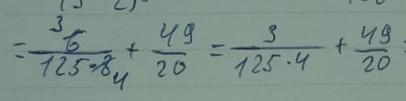 = 3 6 / 125·8 4 + 49/20 = 3/125·4 + 49/20